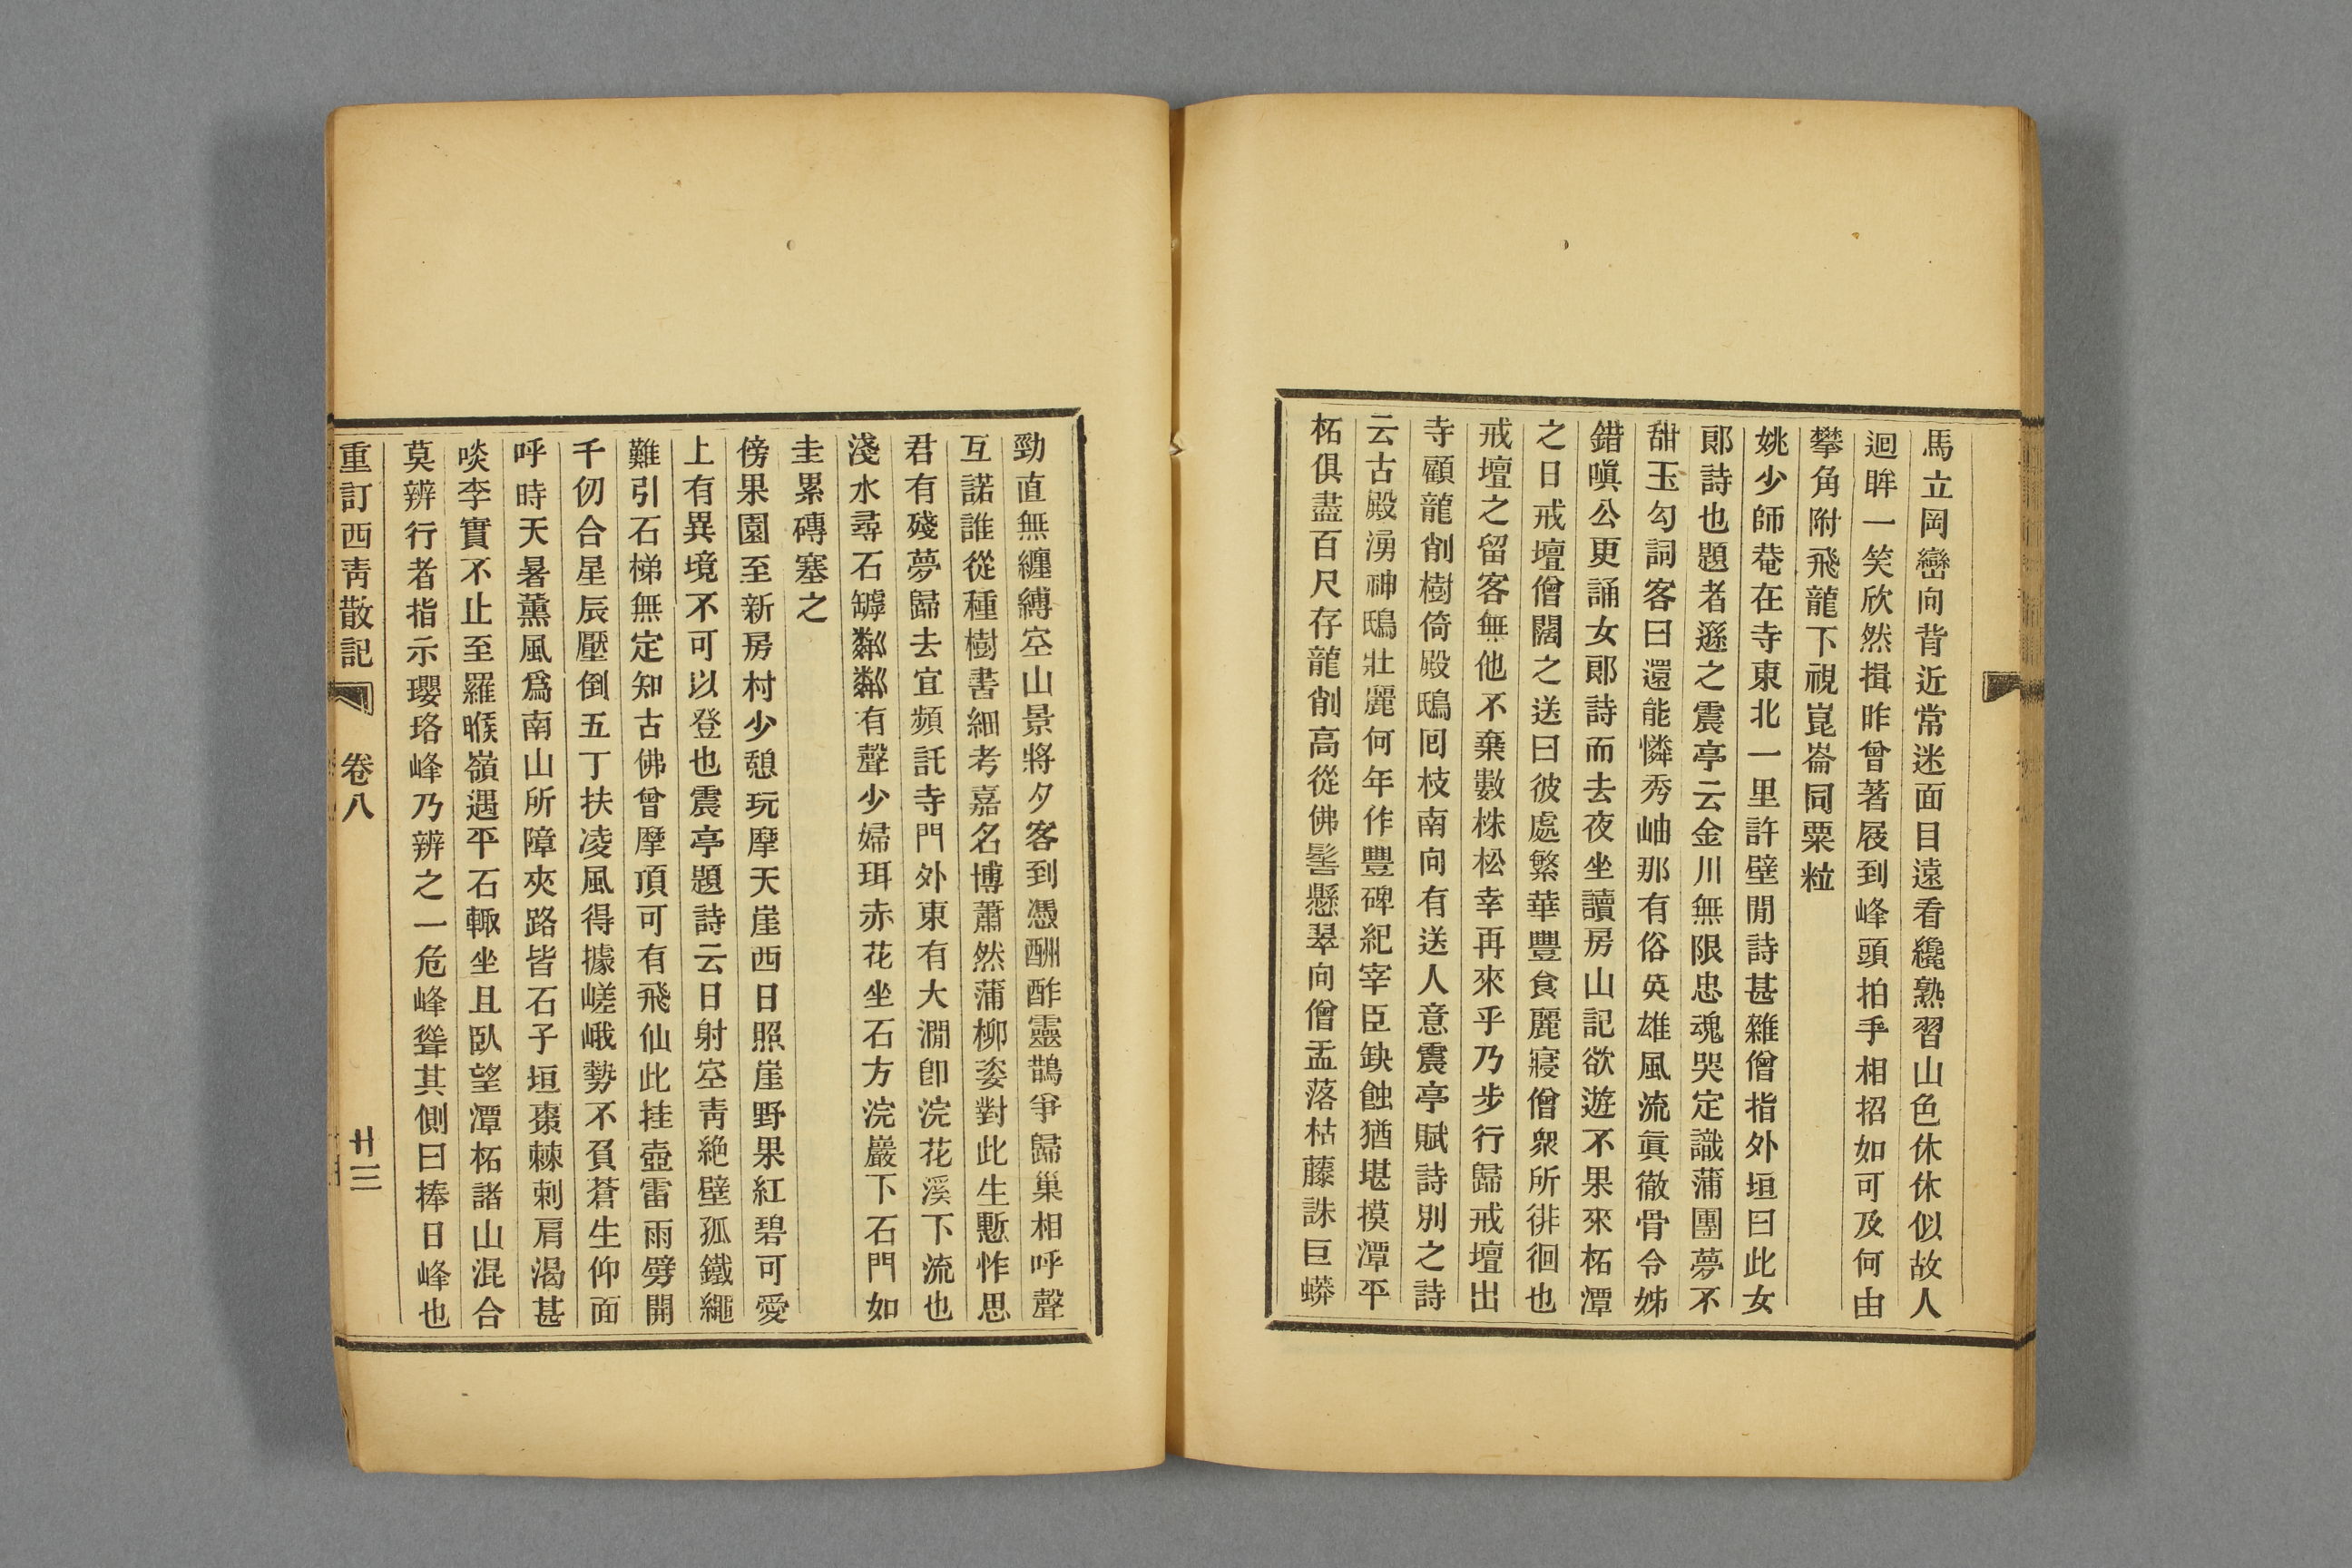 馬立岡巒向背近常迷面目遠看纔熟習山色休休似故人
迴眸一笑欣然揖昨曾著屐到峰頭拍手相招如可及何由
攀角附飛龍下視崑崙同粟粒
姚少師菴在寺東北一里許壁閒詩甚雜僧指外垣曰此女
郞詩也題者遜之震亭云金川無限忠魂哭定識蒲團夢不
甜玉勾詞客曰還能憐秀岫那有俗英雄風流眞徹骨令姊
錯嗔公更誦女郞詩而去夜坐讀房山記欲遊不果來柘潭
之日戒壇僧闊之送曰彼處繁華豐食麗寢僧衆所徘徊也
戒壇之留客無他不棄數株松幸再來乎乃步行歸戒壇出
寺顧龍削樹倚殿鴟囘枝南向有送人意震亭賦詩別之詩
云古殿湧神鴟壯麗何年作豐碑紀宰臣缺蝕猶堪摸潭平
柘俱盡百尺存龍削高從佛髻懸翠向僧盂落枯藤誅巨蟒
勁直無纏縛空山景將夕客到憑酬酢靈鵲爭歸巢相呼聲
互諾誰從種樹書細考嘉名博蕭然蒲柳姿對此生慙怍思
君有殘夢歸去宜頻託寺門外東有大澗卽浣花溪下流也
淺水尋石罅粼粼有聲少婦珥赤花坐石方浣巖下石門如
圭累磚塞之
傍果園至新房村少憩玩摩天崖西日照崖野果紅碧可愛
上有異境不可以登也震亭題詩云日射空靑絶壁孤鐵繩
難引石梯無定知古佛曾摩頂可有飛仙此挂壺雷雨劈開
千仞合星辰壓倒五丁扶凌風得據嵯峨勢不負蒼生仰面
呼時天暑薫風爲南山所障夾路皆石子垣棗棘刺肩渴甚
啖李實不止至羅睺嶺遇平石輒坐且臥望潭柘諸山混合
莫辨行者指示瓔珞峰乃辨之一危峰聳其側曰捧日峰也
重訂西靑散記　卷八　廿三